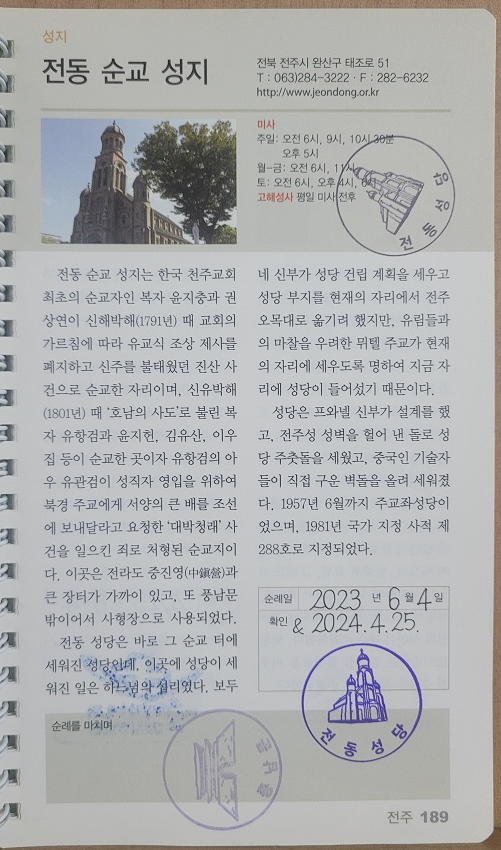 성지
전동 순교 성지
전북 전주시 완산구 태조로 51
T : 063)284-3222 · F : 282-6232
http://www.jeondong.or.kr
미사
주일: 오전 6시, 9시, 10시 30분
오후 5시
월-금: 오전 6시, 11시
토: 오전 6시, 오후 4시, 6시
고해성사 평일 미사 전후
전동성당
전동 순교 성지는 한국 천주교회
최초의 순교자인 복자 윤지충과 권
상연이 신해박해(1791년) 때 교회의
가르침에 따라 유교식 조상 제사를
폐지하고 신주를 불태웠던 진산 사
건으로 순교한 자리이며, 신유박해
(1801년) 때 '호남의 사도'로 불린 복
자 유항검과 윤지헌, 김유산, 이우
집 등이 순교한 곳이자 유항검의 아
우 유관검이 성직자 영입을 위하여
북경 주교에게 서양의 큰 배를 조선
에 보내달라고 요청한 '대박청래' 사
건을 일으킨 죄로 처형된 순교지이
다. 이곳은 전라도 중진영(中鎭營)과
큰 장터가 가까이 있고, 또 풍남문
밖이어서 사형장으로 사용되었다.
전동 성당은 바로 그 순교 터에
세워진 성당인데, 이곳에 성당이 세
워진 일은 하느님의 섭리였다. 보두
네 신부가 성당 건립 계획을 세우고
성당 부지를 현재의 자리에서 전주
오목대로 옮기려 했지만, 유림들과
의 마찰을 우려한 뮈텔 주교가 현재
의 자리에 세우도록 명하여 지금 자
리에 성당이 들어섰기 때문이다.
성당은 프와넬 신부가 설계를 했
고, 전주성 성벽을 헐어 낸 돌로 성
당 주춧돌을 세웠고, 중국인 기술자
들이 직접 구운 벽돌을 올려 세워졌
다. 1957년 6월까지 주교좌성당이
었으며, 1981년 국가 지정 사적 제
288호로 지정되었다.
순례일 2023 년 6 월 4 일
확인 & 2024.4.25.
전동성당
순례를 마치며
전주 189